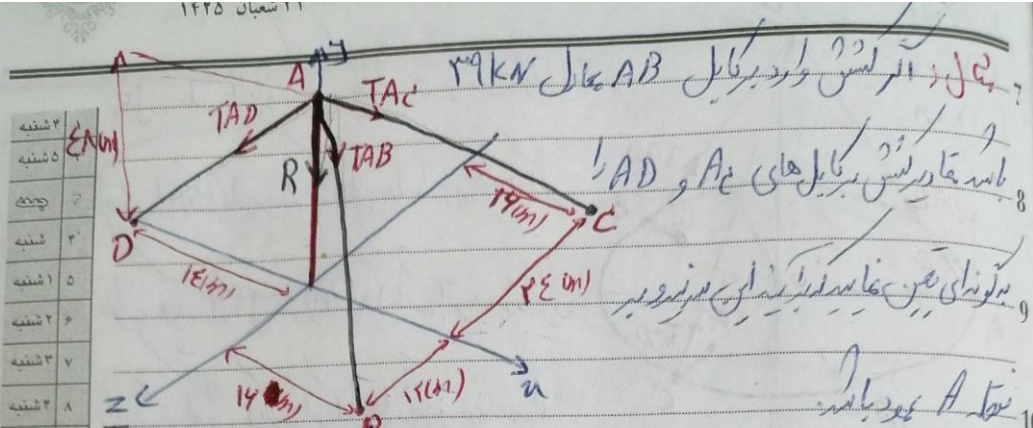 ۲۱ شعبان ۱۴۲۵
مثال: اگر کشش وارد بر کابل AB معادل ۳۹ KN
باشد مقادیر کشش در کابل‌های AC و AD را
به گونه‌ای تعیین نمایید که برآیند این سه نیرو بر
نقطه A عمود باشد.
A
y
TAC
TAD
TAB
R
۴۸(m)
D
۱۶(m)
C
۲۴(m)
۱۴(m)
۱۶(m)
۱۲(m)
z
B
x
۷
۸
۹
۱۰
۴شنبه
۵شنبه
جمعه
شنبه
۱شنبه
۲شنبه
۳شنبه
۴شنبه